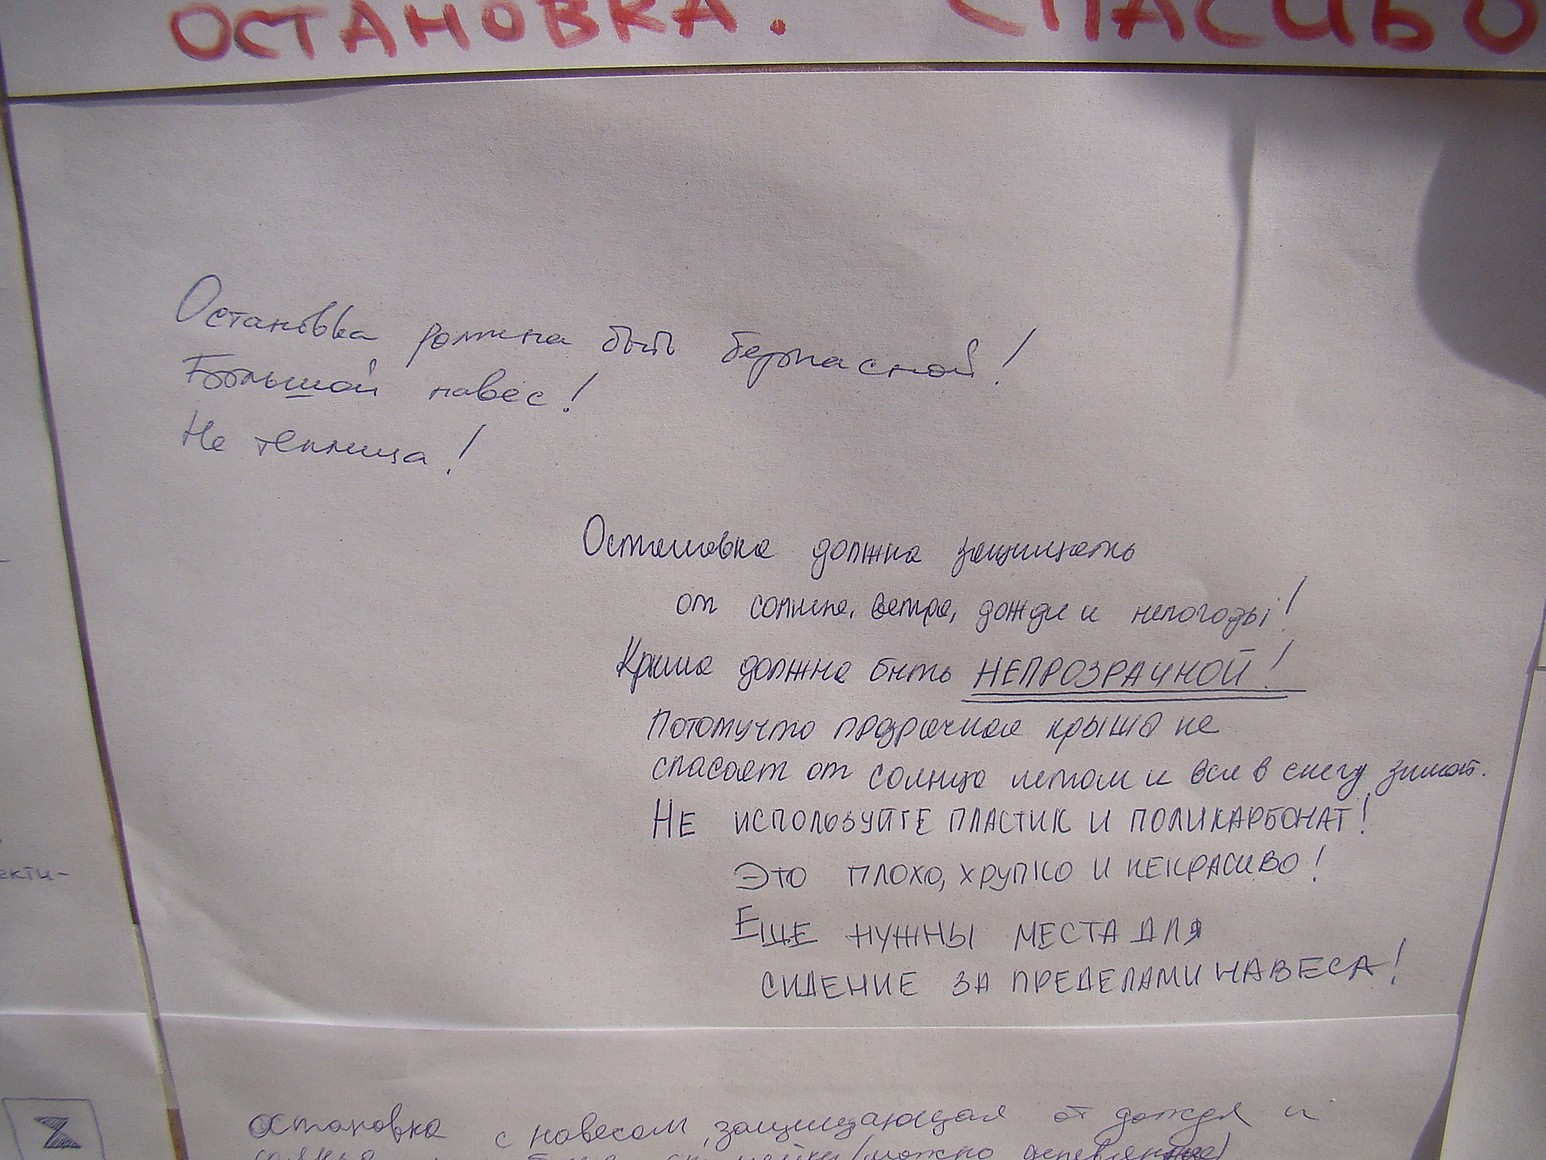 ОСТАНОВКА. СПАСИБО
Остановка должна быть безопасной!
Большой навес!
Не теплица!
Остановка должна защищать
от солнца, ветра, дождя и непогоды!
Крыша должна быть НЕПРОЗРАЧНОЙ!
Потомучто прозрачная крыша не
спасает от солнца летом и вся в снегу зимой.
НЕ ИСПОЛЬЗУЙТЕ ПЛАСТИК И ПОЛИКАРБОНАТ!
ЭТО ПЛОХО, ХРУПКО И НЕКРАСИВО!
ЕЩЕ НУЖНЫ МЕСТА ДЛЯ
СИДЕНИЕ ЗА ПРЕДЕЛАМИ НАВЕСА!
екти-
остановка с навесом, защищающая от дождя и
(можно деревянное)